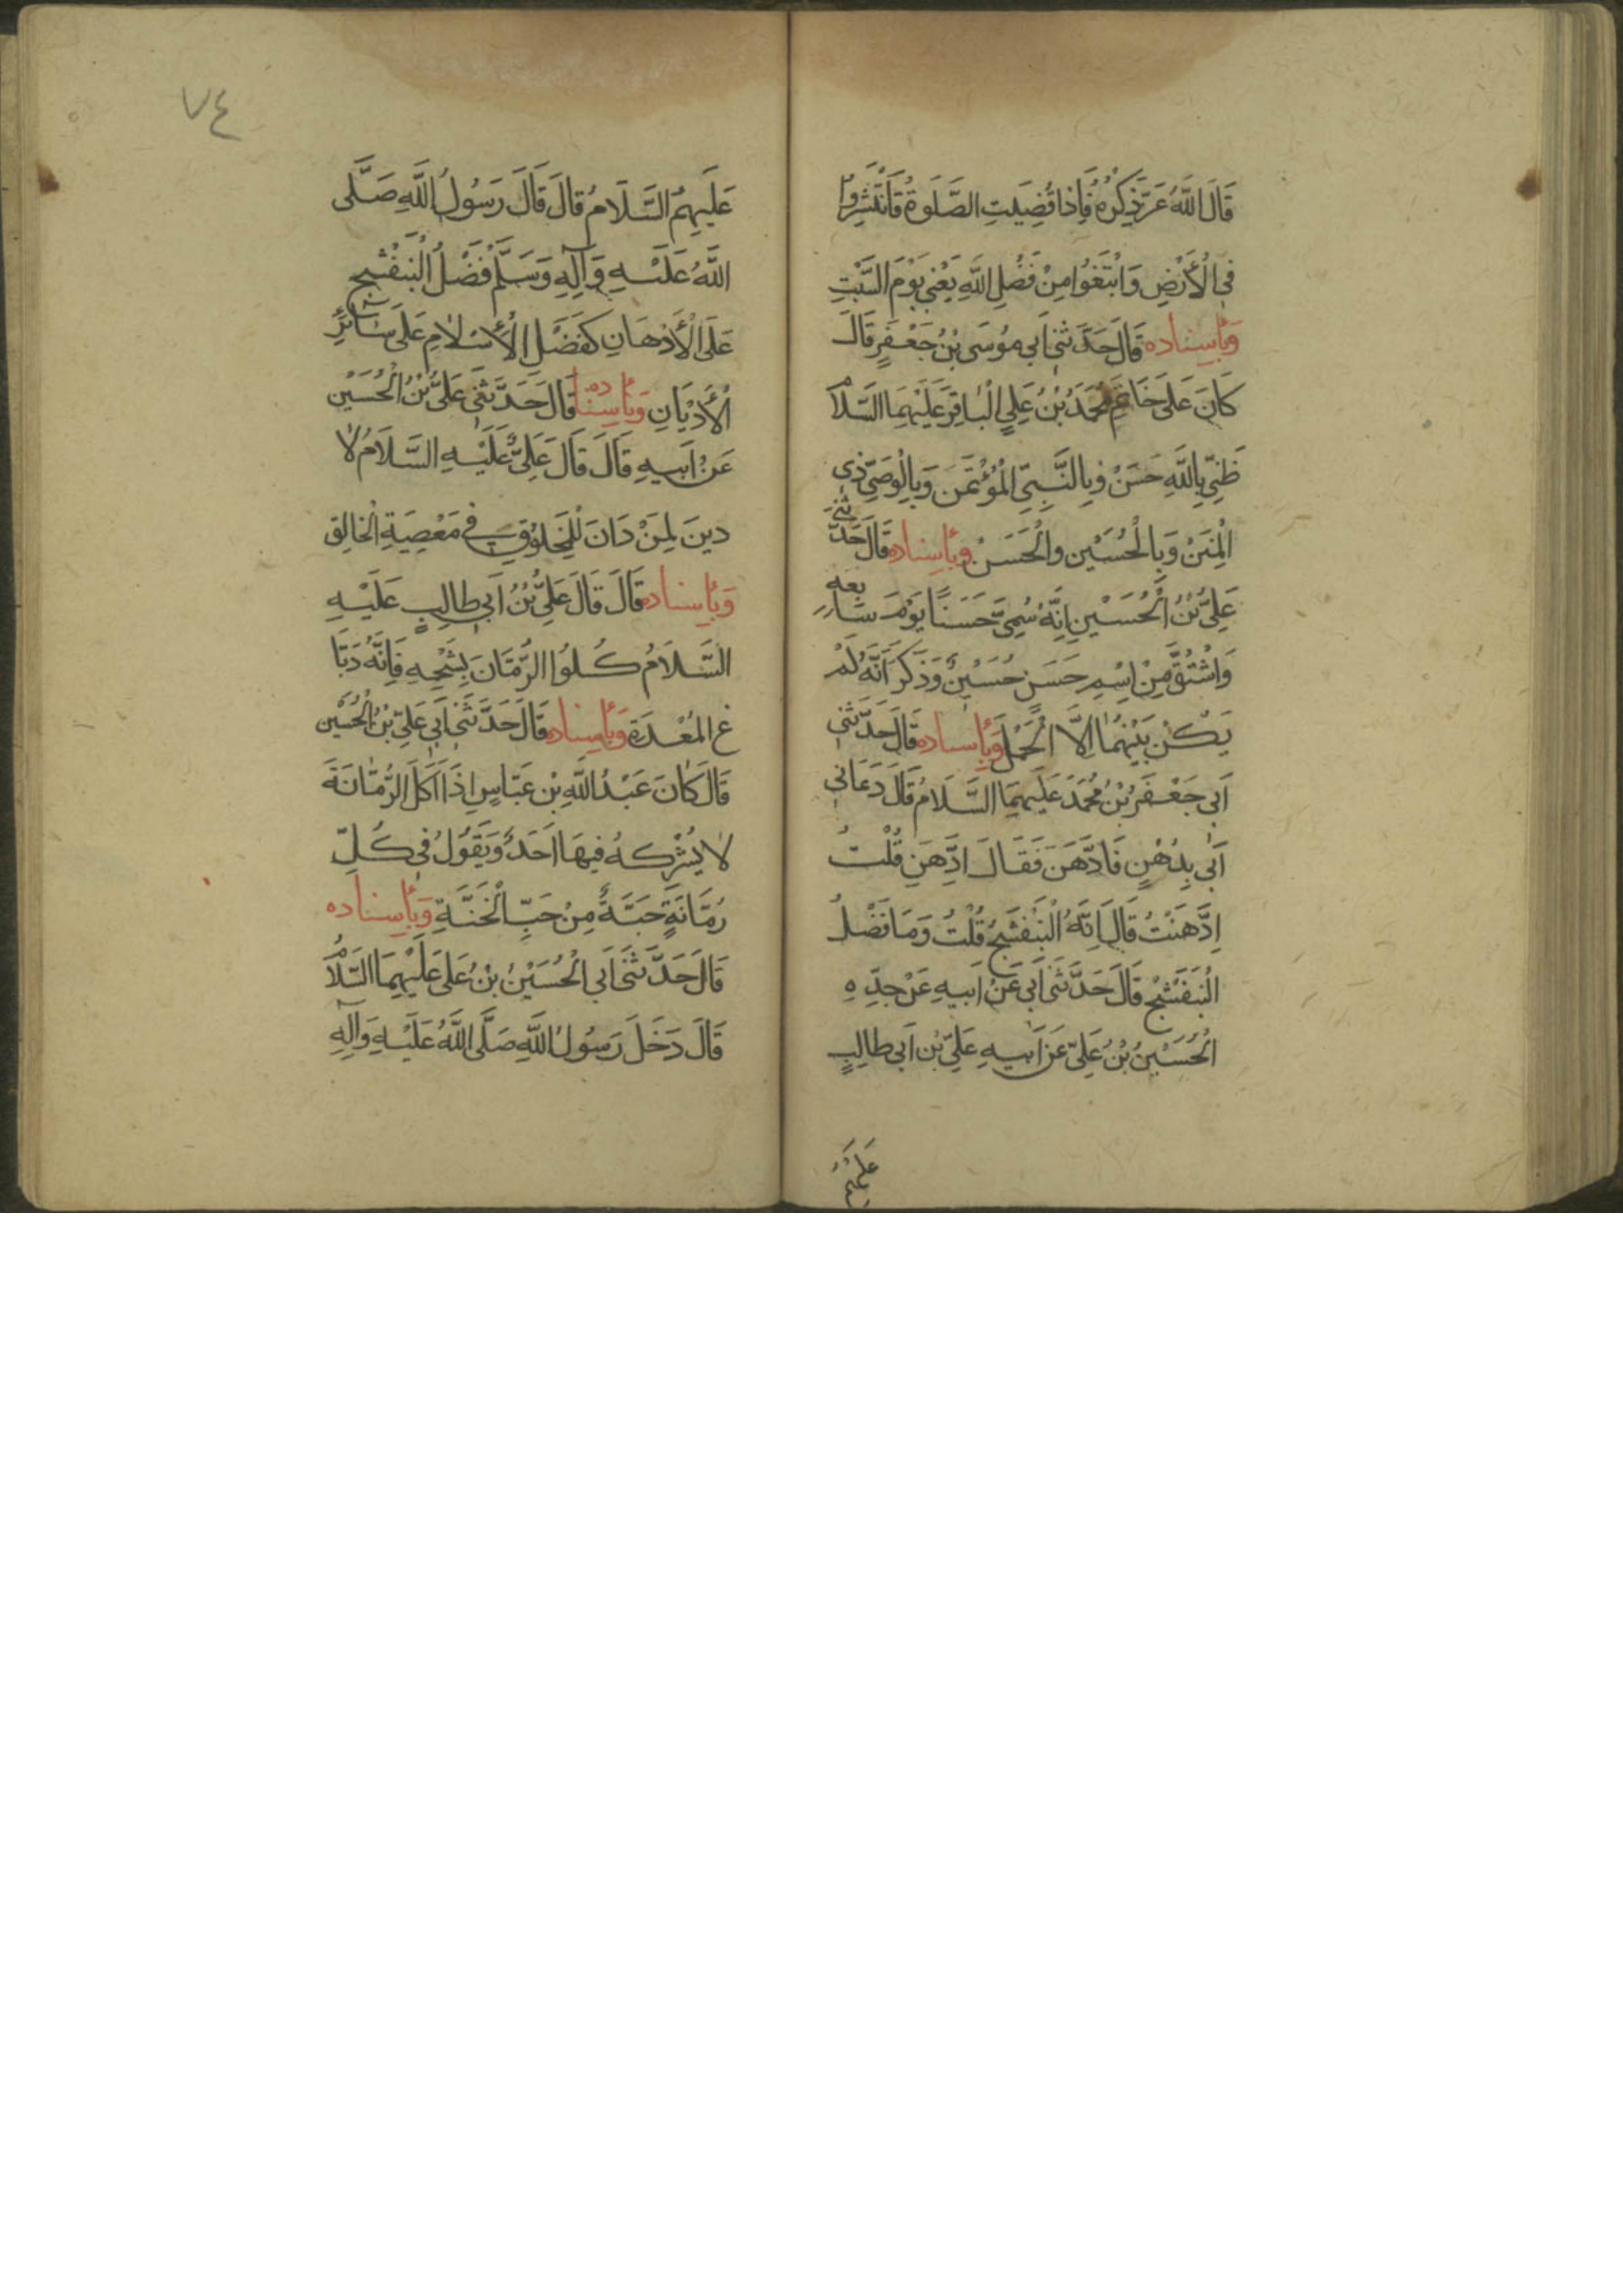 قَالَ اللَّهُ عَزَّ ذِكْرُهُ فَإِذَا قُضِيَتِ الصَّلَوةُ فَانْتَشِرُوا
فِي الْأَرْضِ وَابْتَغُوا مِنْ فَضْلِ اللَّهِ يَعْنِي يَوْمَ السَّبْتِ
وَبِأِسْنَادِه قَالَ حَدَّثَنِي أَبِي مُوسَى بْنُ جَعْفَرٍ قَالَ
كَانَ عَلَى خَاتَمِ مُحَمَّدُ بْنُ عَلِيٍ الْبَاقِرَ عَلَيْهِمَا السَّلَامُ
ظَنِّي بِاللَّهِ حَسَنْ وَبِالنَّبِيِّ الْمُؤْتَمَنْ وَبِالْوَصِيِّ ذِي
الْمِنَنْ وَبِالْحُسَيْنِ وَالْحَسَنْ وَبِأِسْنَادِه قَالَ حَدَّثَنِي
عَلِيُّ بْنُ الْحُسَيْنِ إِنَّهُ سُمِّيَ حَسَنًا يَوْمَ سَابِعِهِ
وَاشْتُقَّ مِنْ اِسْمِ حَسَنٍ حُسَيْنٌ وَذَكَرَ أَنَّهُ لَمْ
يَكُنْ بَيْنَهُمَا إِلَّا الْحَمْلَ وَبِأِسْنَادِه قَالَ حَدَّثَنِي
أَبِي جَعْفَرُ بْنُ مُحَمَّدَ عَلَيْهِمَا السَّلَامُ قَالَ دَعَانِي
أَبِي بِدُهْنٍ فَادَّهَنَ فَقَالَ ادَّهِنِ قُلْتُ
اِدَّهَنْتُ قَالَ إِنَّهُ الْبَنَفْشَجُ قُلْتُ وَمَا فَضْلُ
الْبَنَفْشَجْ قَالَ حَدَّثَنِي أَبِي عَنْ أَبِيهِ عَنْ جَدِّهِ
الْحُسَيْنُ بْنُ عَلِيٍّ عَنْ أَبِيهِ عَلِيِّ بْنِ أَبِي طَالِبٍ
عَلَيْهِمُ
٧٤
عَلَيْهِمُ السَّلَامُ قَالَ قَالَ رَسُولُ اللَّهِ صَلَّى
اللَّهُ عَلَيْهِ وَآلِهِ وَسَلَّمْ فَضْلُ الْبَنَفْشَجِ
عَلَى الْأَدْهَانِ كَفَضْلِ الْأِسْلَامِ عَلَى سَائِرِ
الْأَدْيَانِ وَبِأِسْنَادِه قَالَ حَدَّثَنِي عَلَيُّ بْنُ الْحُسَيْنِ
عَنْ أَبِيهِ قَالَ قَالَ عَلِيٌّ عَلَيْهِ السَّلَامُ لَا
دِينَ لِمَنْ دَانَ لِلْمَخْلُوقِ فِي مَعْصِيَةِ الْخَالِقِ
وَبِأِسْنَادِه قَالَ قَالَ عَلِيُّ بْنُ أَبِي طَالِبٍ عَلَيْهِ
السَّلَامُ كُلُوا الرُّمَّانَ بِشَحْمِهِ فَإِنَّهُ دَبَّا
غ الْمَعْدَةِ وَبِأِسْنَادِه قَالَ حَدَّثَنِي أَبِي عَلِيِّ بْنُ الْحُسَيْنِ
قَالَ كَانَ عَبْدُ اللَّهِ بْنِ عَبَّاسٍ إِذَا أَكَلَ الرُّمَّانَةَ
لَا يُشْرِكهُ فِيهَا أَحَدٌ وَيَقُولُ فِي كُلِّ
رُمَّانَةٍ حَبَّةٌ مِنْ حَبِّ الْجَنَّةِ وَبِأِسْنَادِه
قَالَ حَدَّثَنِي أَبِي الْحُسَيْنُ بْنُ عَلِي عَلَيْهِمَا السَّلَامُ
قَالَ دَخَلَ رَسُولُ اللَّهِ صَلَّى اللَّهُ عَلَيْهِ وَآلِهِ